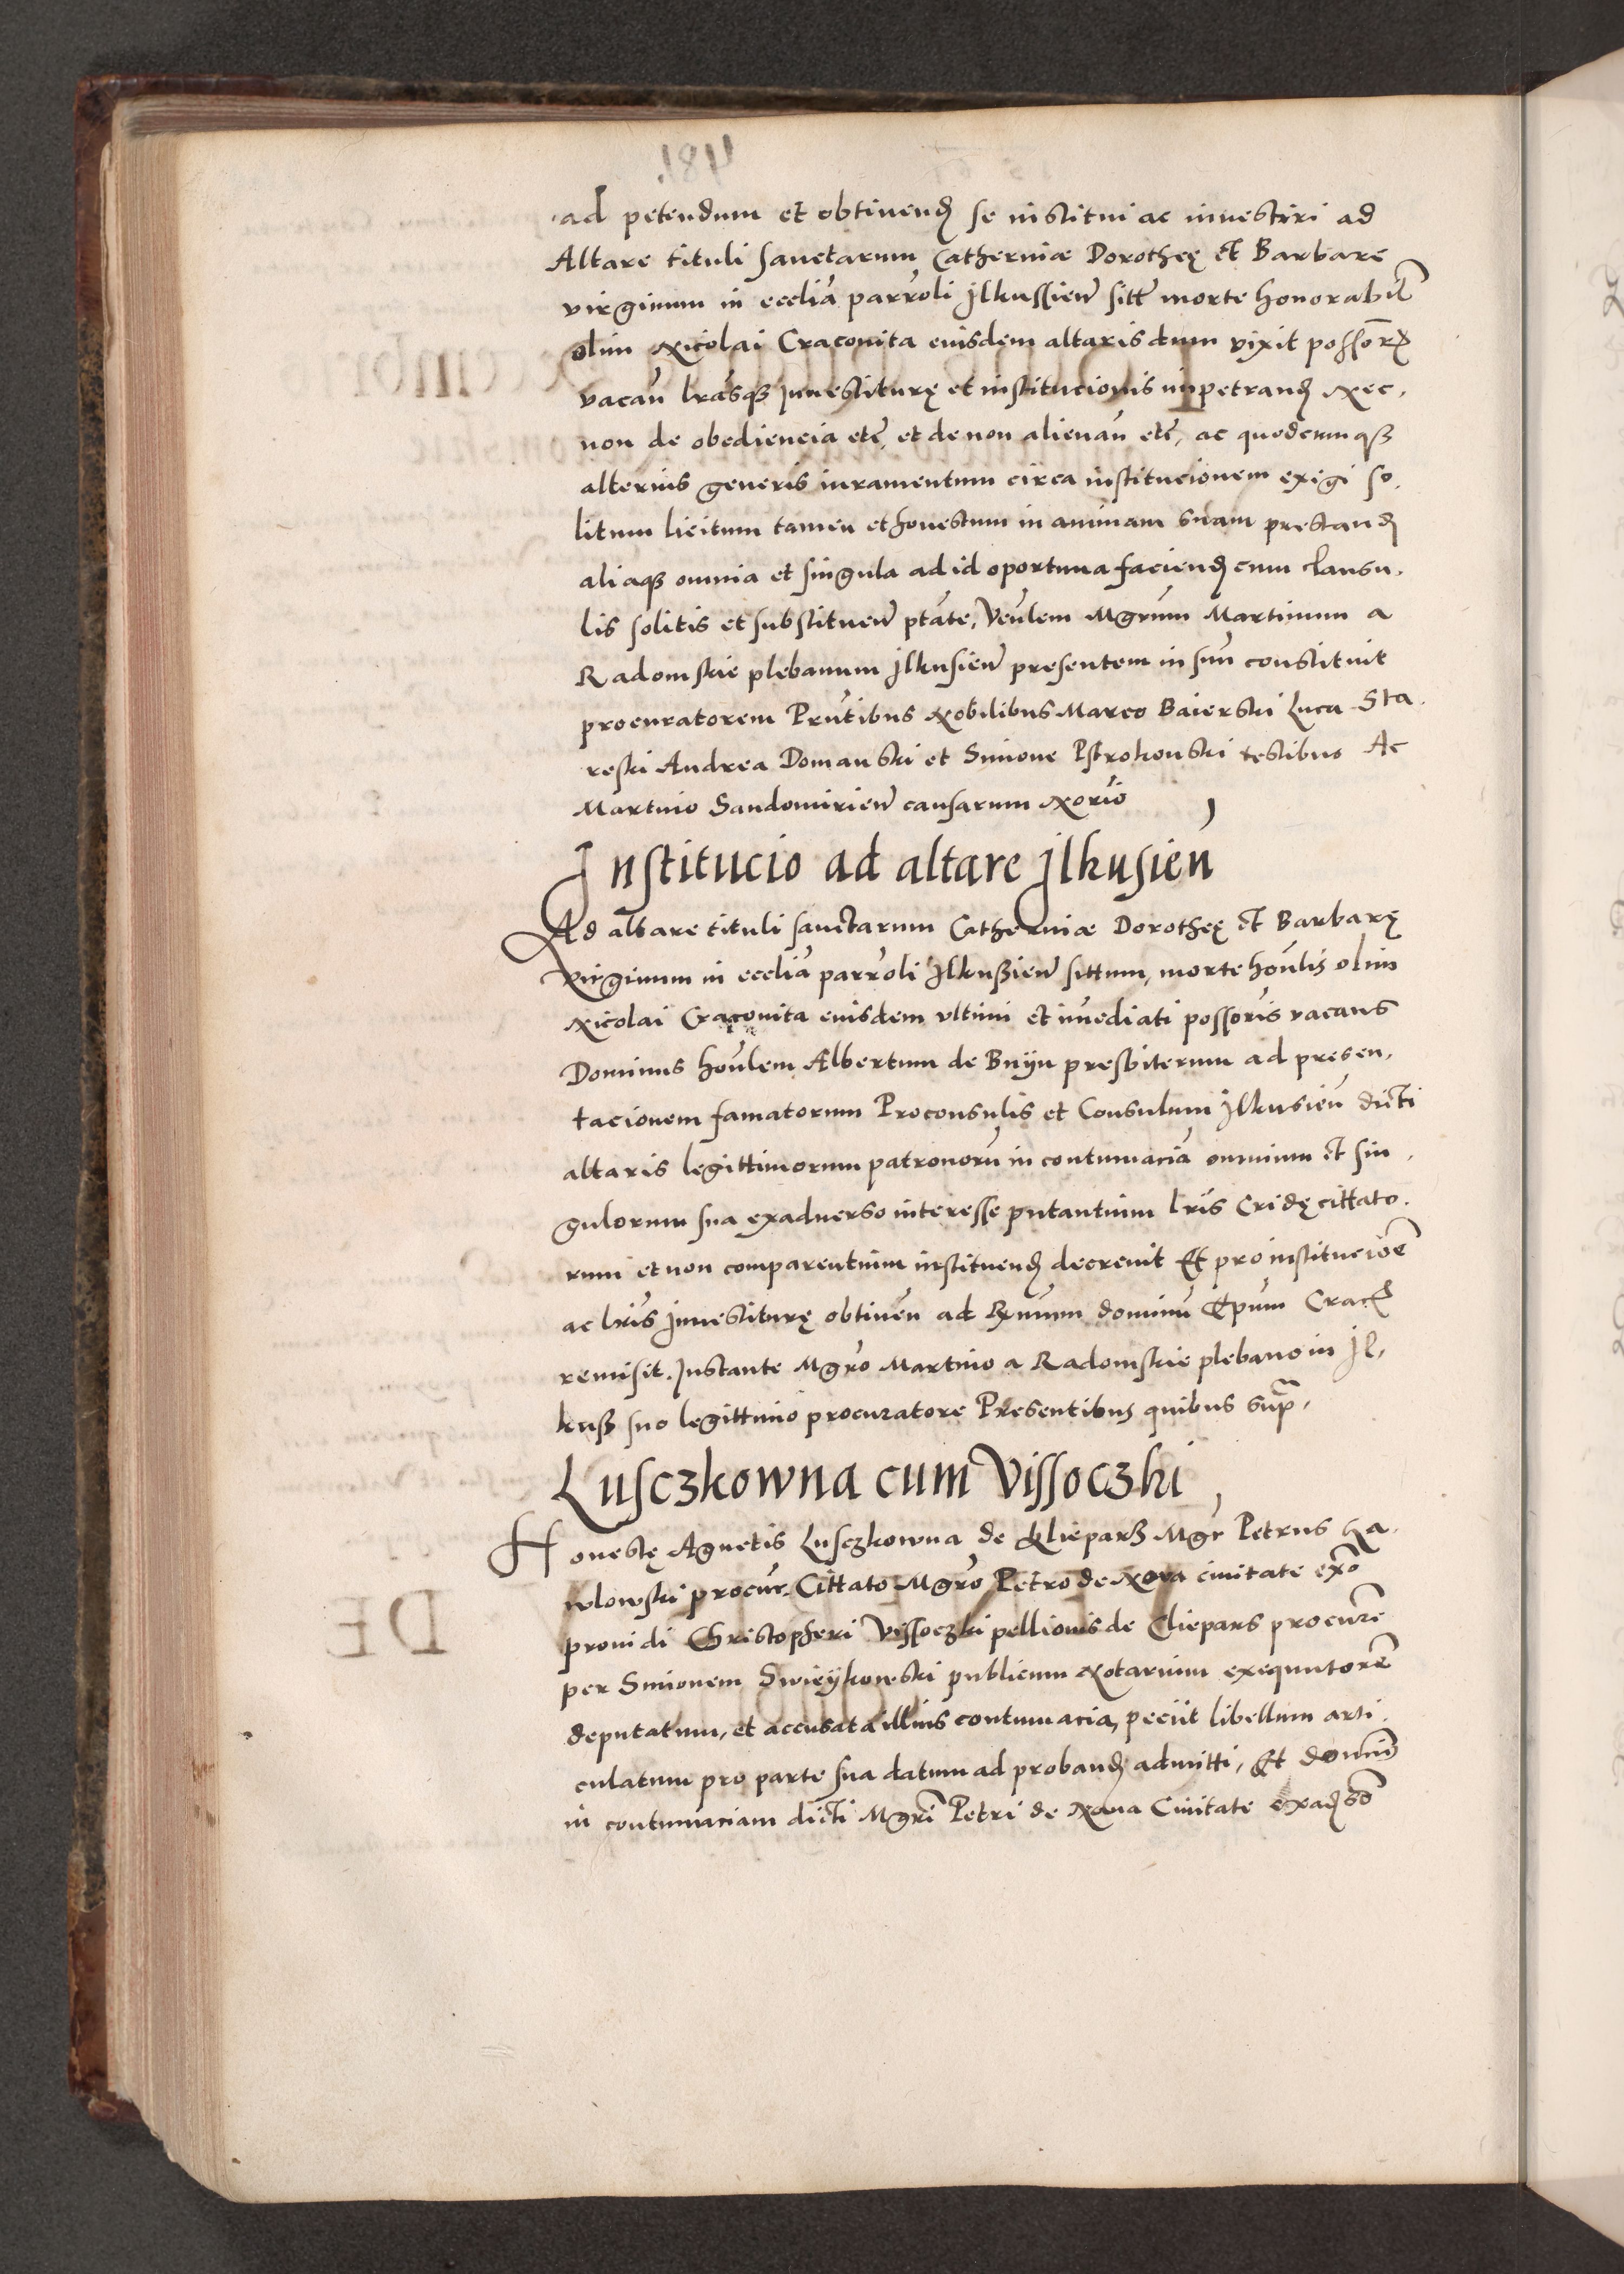 ad petendum et obtinend se institui ac investiri ad
Altare tituli sanctarum Catherinæ Dorotheę et Barbare
virginum in ecclia parroli Ilkussien sitt morte honorabil
olim Nicolai Cracovita eiusdem altaris dum vixit possor
vacan lrasq investiturę et institucionis impetrand Nec,
non de obediencia etc, et de non alienan etc, ac quodcumqß
alterius generis iuramentum circa institucionem exigi so,
litum licitum tamen et honestum in animam suam prestand
aliaqß omnia et singula ad id oportuna faciend cum clausu,
lis solitis et substituen ptate, Venlem Mgrum Martinum a
Radomskie plebanum Ilkusien presentem in sun constituit
procuratorem Prntibus Nobilibus Marco Baierski Luca Sta
reski Andrea Domanski et Simone Pstrokonski testibus Ac
Martino Sandomirien causarum Norio
Institucio ad altare Ilkusien
Ad altare tituli sanctarum Catherinæ Dorotheę et Barbarę
Virginum in ecclia parroli Ilkußien sittum, morte honlis olim
Nicolai Cracovita eiusdem ultimi et imediati possoris vacans
Dominus honlem Albertum de Bnyn presbiterum ad presen,
tacionem famatorum Proconsulis et Consulum Ilkusien dicti
altaris legittimorum patronoru in contumacia omnium et sin,
gulorum sua exadverso interesse putantium lris Cridę cittato,
rum et non comparentium instituend decrevit Et pro institucioe
ac lris investiturę obtinen ad Rmum dominu Epum Crac
remisit. Instante Mgro Martino a Radomskie plebano in Il,
kuß suo legittimo procuratore Presentibus quibus supra,
Lusczkowna cum Vissoczki
Honestę Agnetis Lusczkowna de Klieparß Mgr Petrus Ra,
wlowski procur. Cittato Mgro Petro de Nova civitate exo
providi Christopheri Vissoczki pellionis de Cliepars procure
per Simonem Swieykowski publicum Notarium exequutore
deputatum, et accusata illius contumacia, peciit libellum arti,
culatum pro parte sua datum ad proband admitti, Et domin
in contumaciam dicti Mgri Petri de Nova Civitate